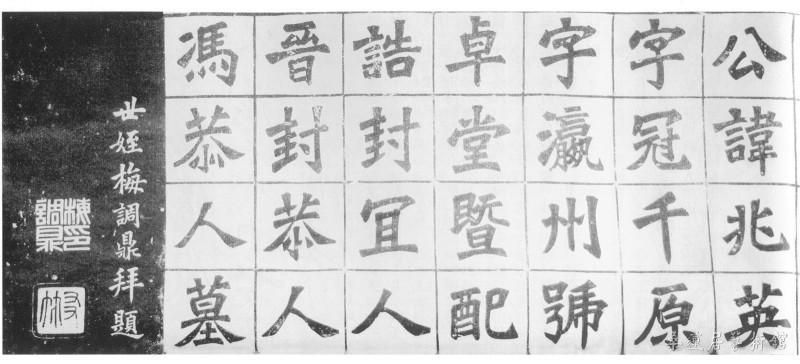 公諱兆英
字冠千原
字瀛州號
卓堂暨配
誥封宜人
晉封恭人
馮恭人墓
世姪梅調鼎拜題
梅調鼎印